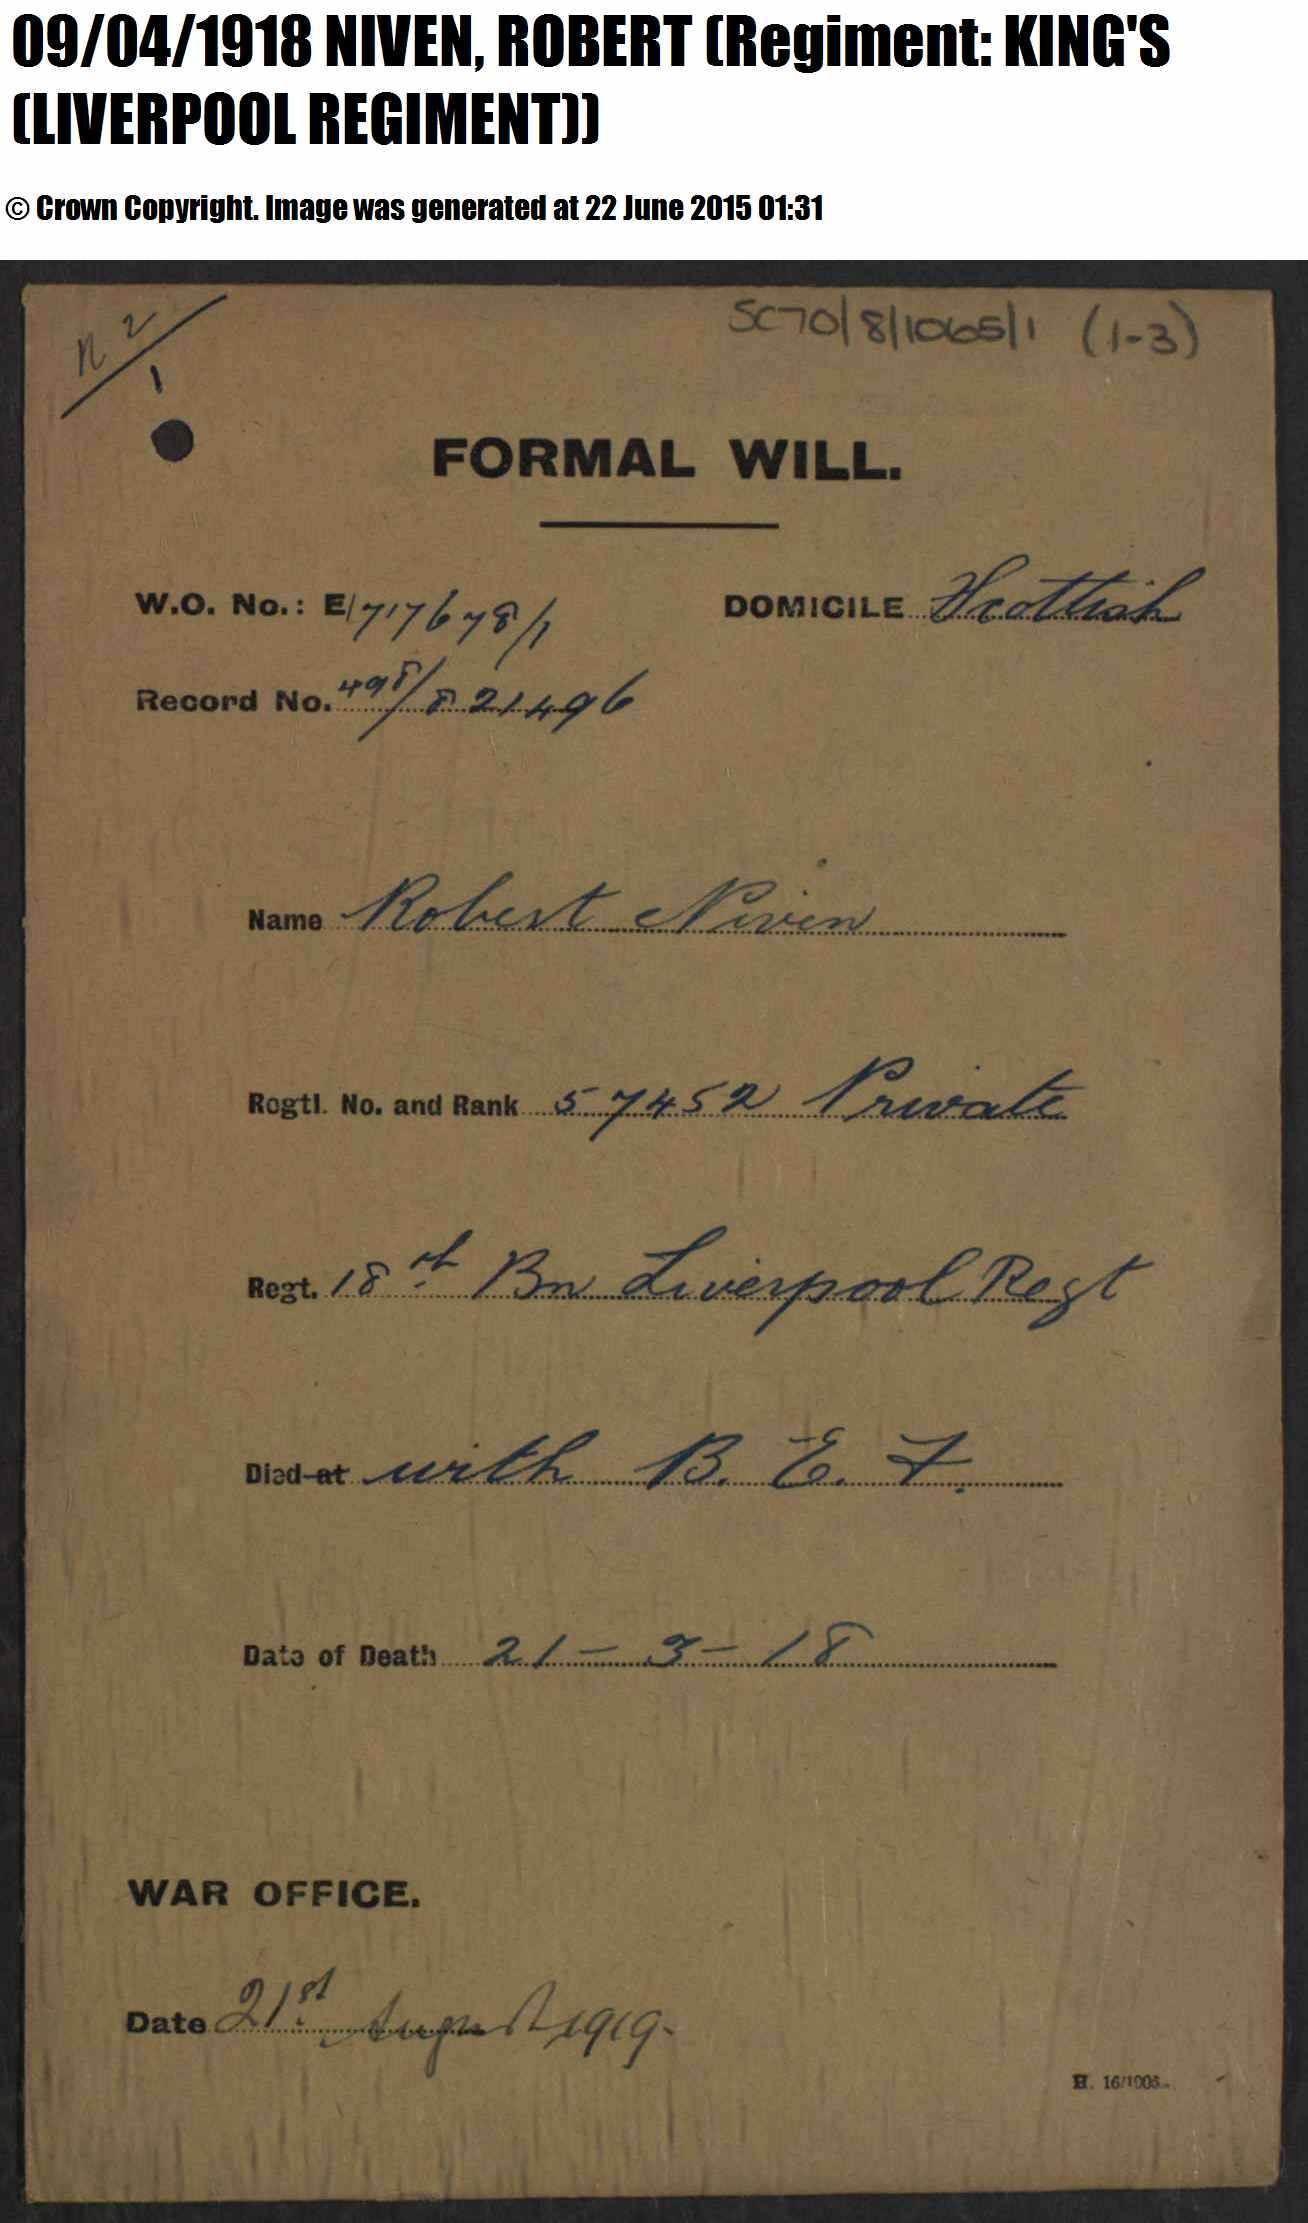 09/04/1918 NIVEN, ROBERT (Regiment: KING'S
(LIVERPOOL REGIMENT))
© Crown Copyright. Image was generated at 22 June 2015 01:31
N 2
1
SC70/8/1065/1 (1-3)
FORMAL WILL.
W.O. No.: E/717678/1
DOMICILE Scottish
Record No. 498/821496
Name Robert Niven
Regtl. No. and Rank 57452 Private
Regt. 18th Bn Liverpool Regt
Died at with B. E. F.
Date of Death 21-3-18
WAR OFFICE.
Date 21st August 1919.
H. 16/1006